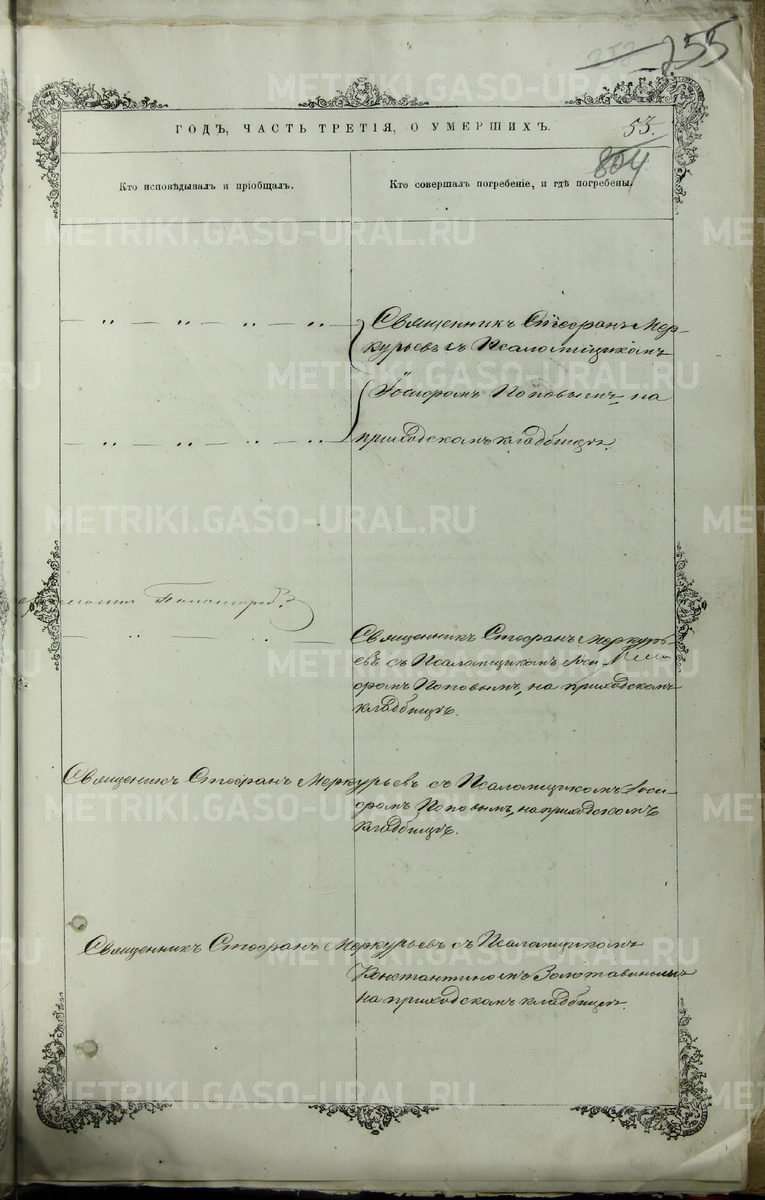 255
ГОДЪ, ЧАСТЬ ТРЕТІЯ, О УМЕРШИХЪ.
53.
804
Кто исповѣдывалъ и пріобщалъ.
Кто совершалъ погребеніе, и гдѣ погребены.
— " — " — " — " —
Священникъ Стефанъ Мер-
курьевъ съ Псаломщикомъ
Іосифомъ Поповымъ на
— " — " — " — " —
приходскомъ кладбищѣ.
— " — " —
Священникъ Стефанъ Меркурь-
евъ съ Псаломщикомъ Іоси-
фомъ Поповымъ, на приходскомъ
кладбищѣ.
Священникъ Стефанъ Меркурьевъ съ Псаломщикомъ Іоси-
фомъ Поповымъ, на приходскомъ
кладбищѣ.
Священникъ Стефанъ Меркурьевъ съ Псаломщикомъ
Константиномъ Золотавинымъ
на приходскомъ кладбищѣ.
METRIKI.GASO-URAL.RU